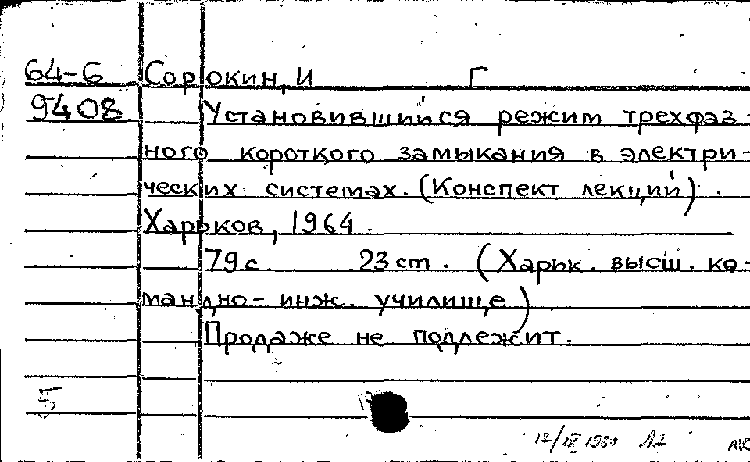 64-6 Сорокин, И Г
9408 Установившийся режим трехфаз-
ного короткого замыкания в электри-
ческих системах. (Конспект лекций).
Харьков, 1964
79 с 23 cm. (Харьк. высш. ко-
мандно-инж. училище)
Продаже не подлежит.